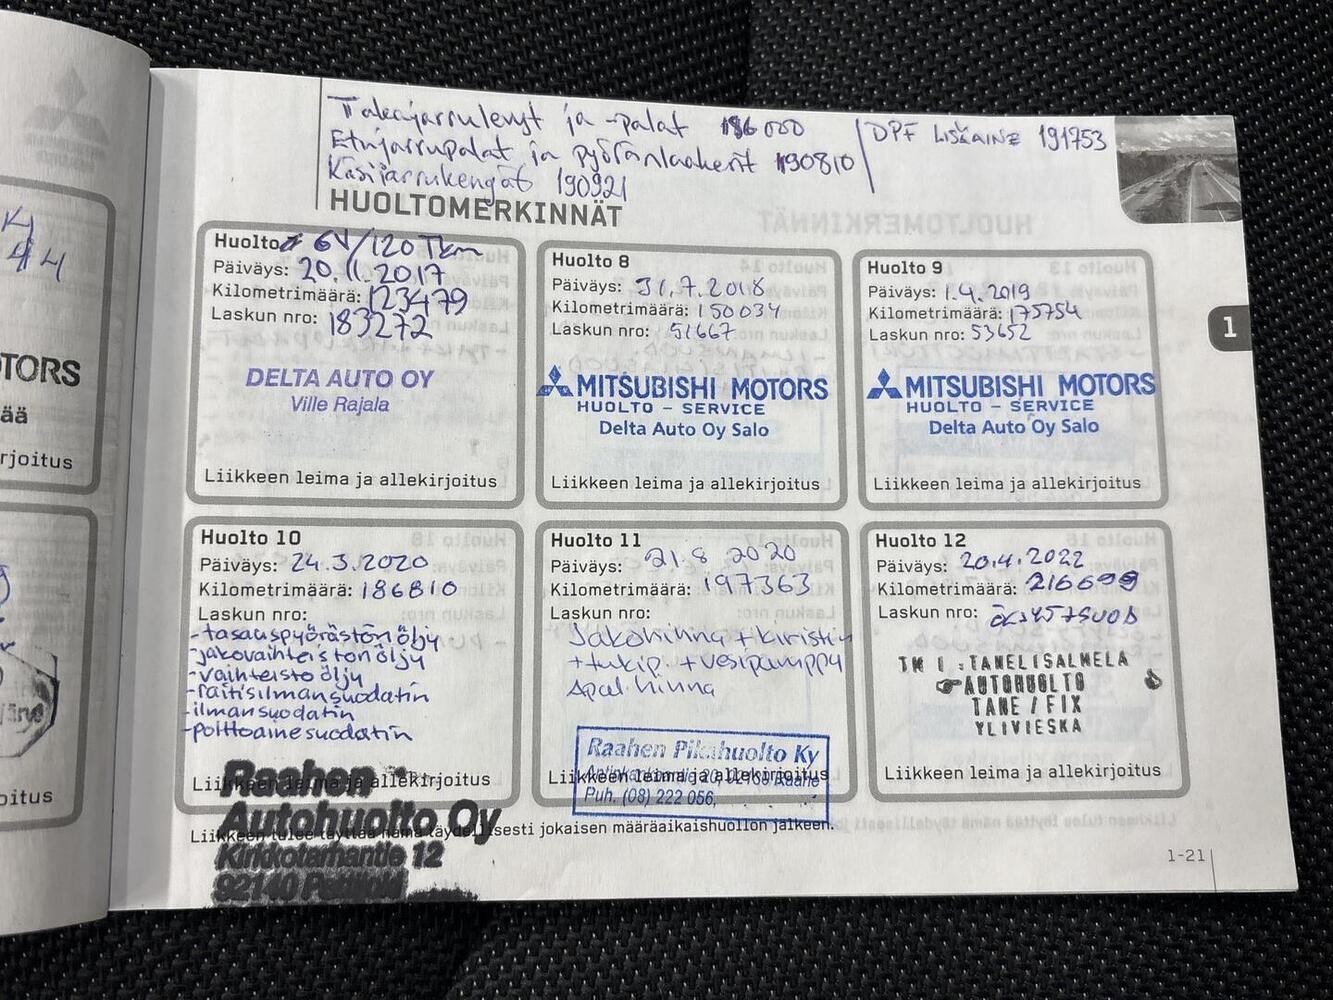 Takajarrulevyt ja -palat 186000
Etujarrupalat ja pyöränlaakerit 190810
Käsijarrukengät 190921
DPF LISÄAINE 191753
HUOLTOMERKINNÄT
Huolto 6V/120 Tkm
Päiväys: 20.11.2017
Kilometrimäärä: 123479
Laskun nro: 183272
DELTA AUTO OY
Ville Rajala
Liikkeen leima ja allekirjoitus
Huolto 8
Päiväys: 31.7.2018
Kilometrimäärä: 150034
Laskun nro: 51667
MITSUBISHI MOTORS
HUOLTO - SERVICE
Delta Auto Oy Salo
Liikkeen leima ja allekirjoitus
Huolto 9
Päiväys: 1.4.2019
Kilometrimäärä: 175754
Laskun nro: 53652
MITSUBISHI MOTORS
HUOLTO - SERVICE
Delta Auto Oy Salo
Liikkeen leima ja allekirjoitus
1
Huolto 10
Päiväys: 24.3.2020
Kilometrimäärä: 186810
Laskun nro:
-tasauspyörästön öljy
-jakovaihteistonöljy
-vaihteistoöljy
-raitisilmansuodatin
-ilmansuodatin
-polttoainesuodatin
Liikkeen leima ja allekirjoitus
Raahen
Autohuolto Oy
Kirkkotarhantie 12
92140 Pattijoki
Huolto 11
Päiväys: 21.8 2020
Kilometrimäärä: 197363
Laskun nro:
Jakohihna + kiristin
+ tukip. + vesipumppu
Apul. hihna
Raahen Pikahuolto Ky
Liikkeen leima ja allekirjoitus
Puh. (08) 222 056,
Huolto 12
Päiväys: 20.4.2022
Kilometrimäärä: 216699
Laskun nro:
TMI: TANELI SALMELA
AUTOHUOLTO
TANE / FIX
YLIVIESKA
Liikkeen leima ja allekirjoitus
Liikkeen tulee täyttää nämä täydellisesti jokaisen määräaikaishuollon jälkeen.
1-21
TORS
ää
rjoitus
oitus